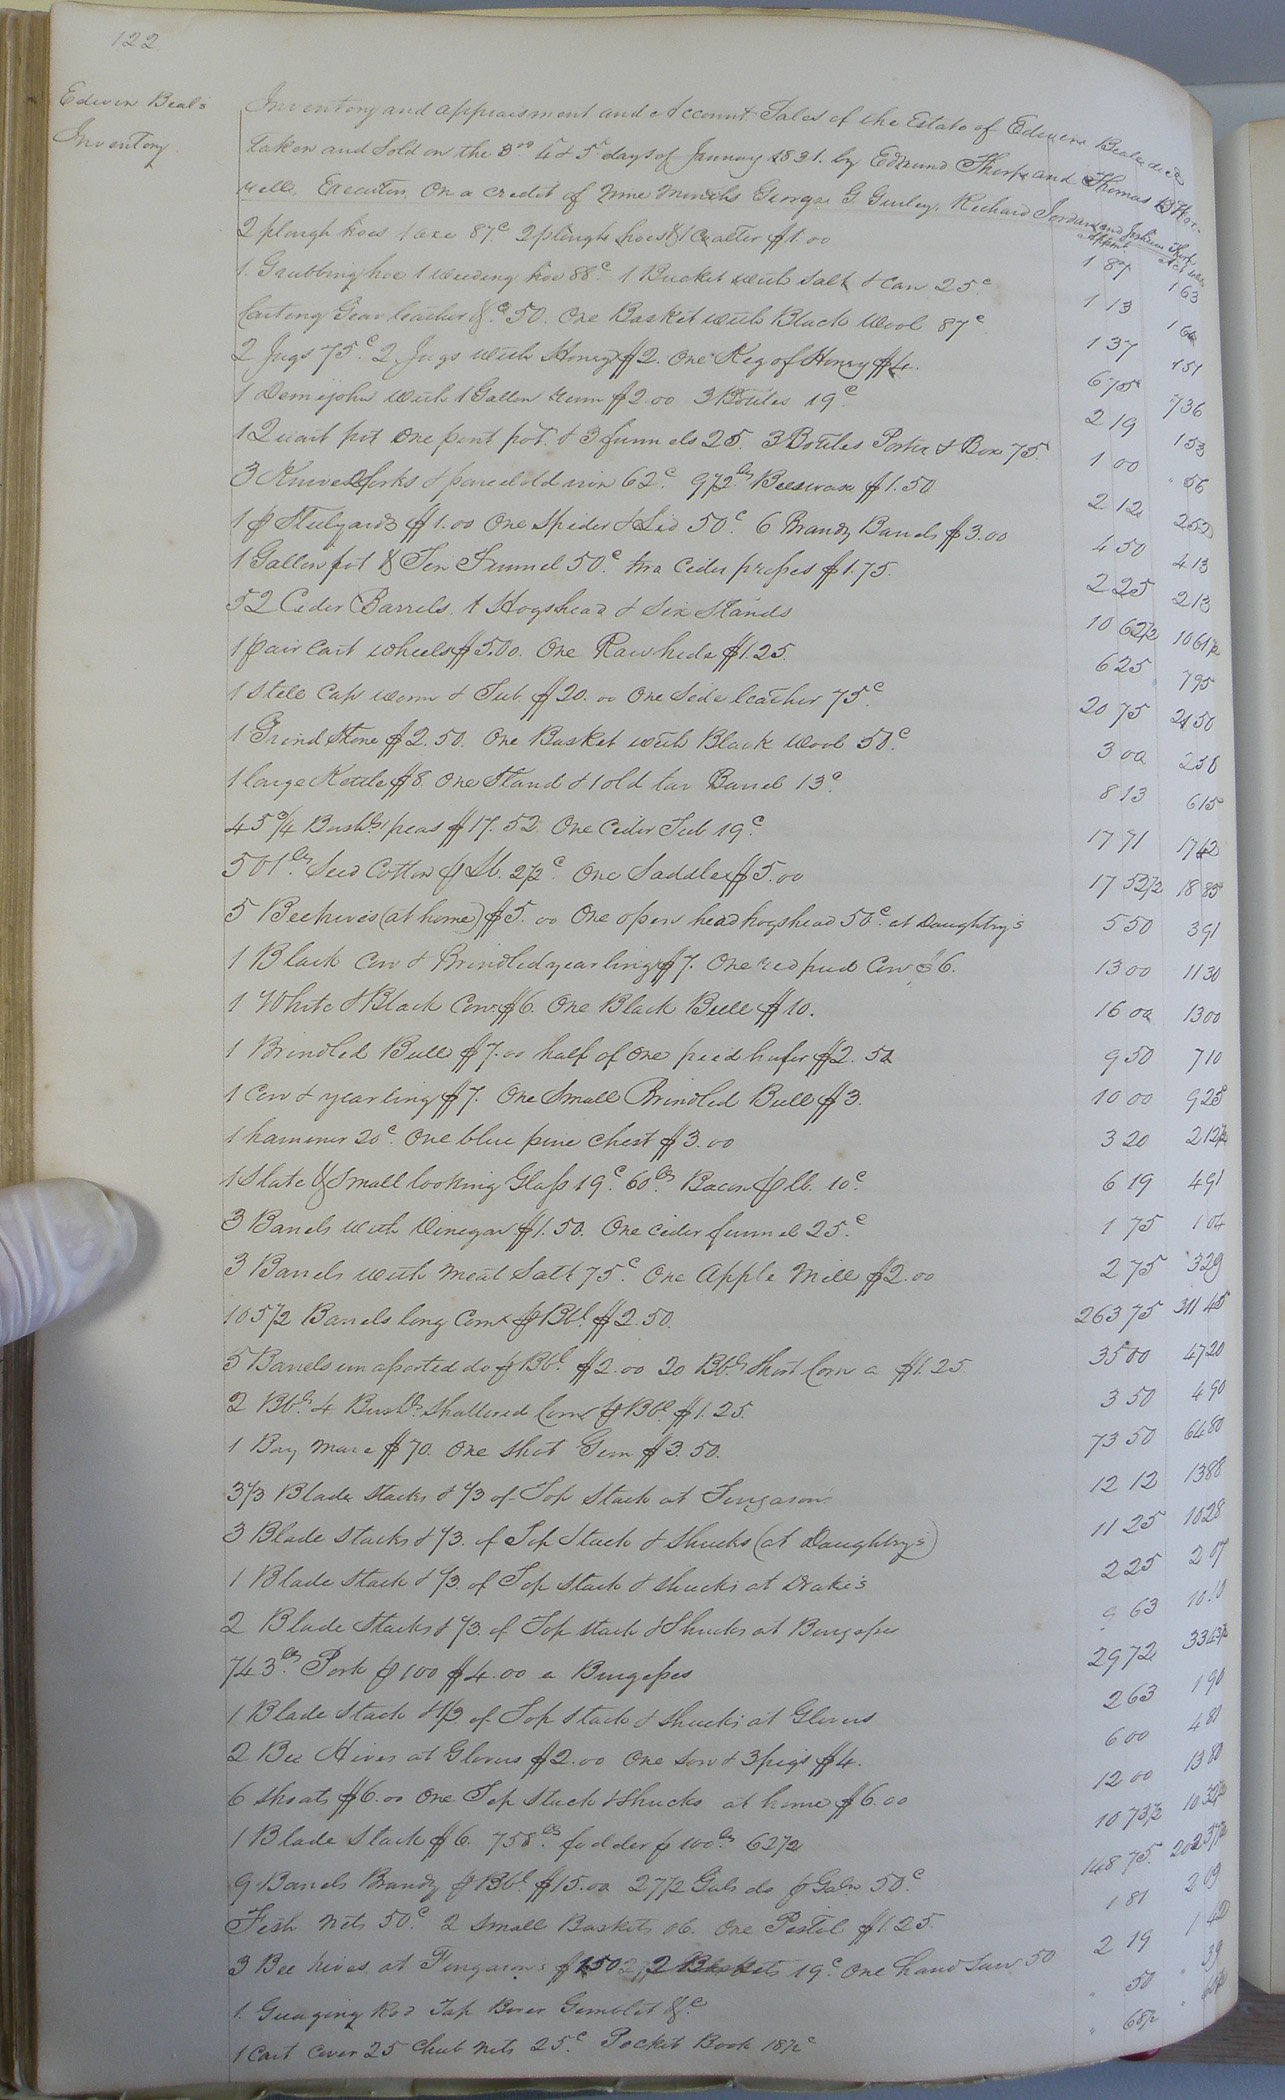 122
Edwin Beal's
Inventory
Inventory and appraisment and Account Sales of the Estate of Edwin Beale decd
taken and Sold on the 3rd 4th & 5th days of January 1831. by Edmund Thorpe and Thomas
Executors On a credit of Nine Months George G. Gurley, Richard Jordan and Joshua Thorp
2 plough hoes 1 axe 87c 2 ploughs hoes & 1 Coalter $1.00 1 87 1 63
1. Grubbing hoe 1 weeding hoe 88c 1 Bucket with Salt & Can 25c 1 13 1
Carting Gear leather &c 50. One Basket with Black Wool 87c 1 37 1 51
2 Jugs 75c 2 Jugs with Honey $2. One Keg of Honey $4. 6 75 7 36
1 Demijohn with 1 Gallon rum $2.00 3 Bottles 19c 2 19 1 53
1 Quart pot One pint pot & 3 funnels 25. 3 Bottles Porter & Box 75. 1 00 " 56
3 Knives forks & parcel old iron 62c 9 1/2 lbs Beeswax $1.50 2 12 2 52
1 pr Steelyards $1.00 One Spider & Lid 50c 6 Brandy Barrels $3.00 4 50 4 13
1 Gallon pot & Tin Funnel 50c two Cider presses $1.75. 2 25 2 13
52 Cider Barrels. 1 Hogshead & Six Stands 10 62 1/2 10 61 1/2
1 pair Cart wheels $5.00. One Rawhide $1.25. 6 25 7 95
1 Still Cap worm & Tub. $20.00 One Side leather 75c 20 75 21 50
1 Grind Stone $2.50. One Basket with Black Wool 50c 3 00 2 58
1 large Kettle $8. One Stand & 1 old tar Barrel 13c 8 13 6 15
45 3/4 Bushls peas $17.52. One Cider Tub 19c 17 71 17 62
501 lbs Seed Cotton p lb. 2 1/2c One Saddle $5.00 17 52 1/2 18 85
5 Beehives (at home) $5.00 One open head hogshead 50c at Daughtry's 5 50 3 91
1 Black Cow & Brindled yearling $7. One red pied Cow $6. 13 00 11 30
1 White & Black Cow $6. One Black Bull $10. 16 00 13 00
1 Brindled Bull $7.00 half of One pied heifer $2.50 9 50 7 10
1 Cow & yearling $7. One Small Brindled Bull $3. 10 00 9 25
1 hammer 20c One blue pine Chest $3.00 3 20 2 12 1/2
1 Slate & Small looking Glass 19c 60 lbs Bacon p lb. 10c 6 19 4 91
3 Barrels with Vinegar $1.50. One cider funnel 25c 1 75 1 04
3 Barrels with Meat Salt 75c One Apple Mill $2.00 2 75 3 29
105 1/2 Barrels long Corn p Bbl $2.50. 263 75 311 45
5 Barrels unassorted do p Bbl $2.00 20 Bbls Short Corn a $1.25 35 00 47 20
2 Bbls 4 Bushls Shattered Corn p Bbl $1.25. 3 50 4 90
1 Bay Mare $70. One Shot Gun $3.50. 73 50 64 80
3 1/3 Blade Stacks & 1/3 of Top Stack at Fergason's 12 12 13 88
3 Blade Stacks & 1/3. of Top Stack & Shucks (at Daughtry's) 11 25 10 28
1 Blade Stack & 1/3. of Top Stack & Shucks at Drake's 2 25 2 07
2 Blade Stacks & 1/3. of Top Stack & Shucks at Burgesses 9 63 10.10
743 lbs Pork p 100 $4.00 a Burgesses 29 72 33 43 1/2
1 Blade Stack & 1/3. of Top Stack & Shucks at Glovers 2 63 1 90
2 Bee Hives at Glovers $2.00 One Sow & 3 pigs $4. 6 00 4 81
6 Shoats $6.00 One Top Stack & Shucks at home $6.00 12 00 13 80
1 Blade Stack $6. 758 lbs fodder p 100 lbs 62 1/2 10 73 1/2 10 32 1/2
9 Barrels Brandy p Bbl $15.00 27 1/2 Gals do p Galn 50c 148 75. 202 37 1/2
Fish Nets 50c 2 Small Baskets 06. One Pistol $1.25. 1 81 2 09
3 Bee hives at Fergason's $1.50 2 Baskets 19c One hand Saw 50 2 19 1 42
1. Guaging Rod Tap Borer Gimblet &c " 50 " 39
1 Cart Cover 25 Chub Nets 25c Pocket Book 18 1/2c " 68 1/2 "